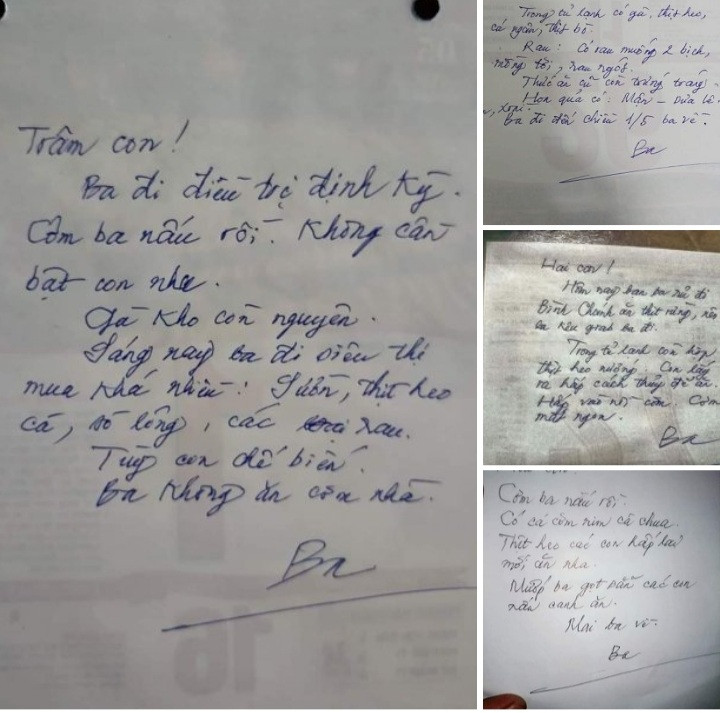 Trâm con!
Ba đi điều trị định kỳ.
Cơm ba nấu rồi. Không cần
bật con nha.
Gà kho còn nguyên.
Sáng nay ba đi siêu thị
mua khá nhiều: Sườn, thịt heo
cá, sò lông, các loại rau.
Tùy con chế biến.
Ba không ăn cơm nhà.
Ba
Trong tủ lạnh có gà, thịt heo,
cá ngừ, thịt bò.
Rau: Có rau muống 2 bịch,
mồng tơi, rau ngót.
Thức ăn cũ còn trứng tráng.
Hoa quả có: Mận - dưa lê
Ba đi đến chiều 1/5 ba về.
Ba
Hai con!
Hôm nay bạn ba rủ đi
Bình Chánh ăn thịt rừng, nên
ba kêu grab ba đi.
Trong tủ lạnh còn hộp
thịt heo nướng. Con lấy
ra hấp cách thủy để ăn.
Hấp vào nồi cơm. Cơm
mới ngon.
Ba
Cơm ba nấu rồi.
Có cá cơm rim cà chua.
Thịt heo các con hấp lại
mới ăn nha.
Mướp ba gọt sẵn các con
nấu canh ăn.
Mai ba về.
Ba